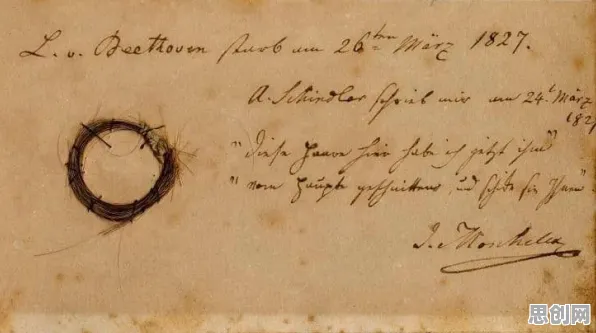 L. v. Beethoven starb am 26ten März 1827.
A. Schindler schrieb mir am 24t März
182
"diese Haare hier habe ich jetzt ihm"
"vom Haupte geschnitten, und schicke sie Ihnen"
I. Moscheles
思创网